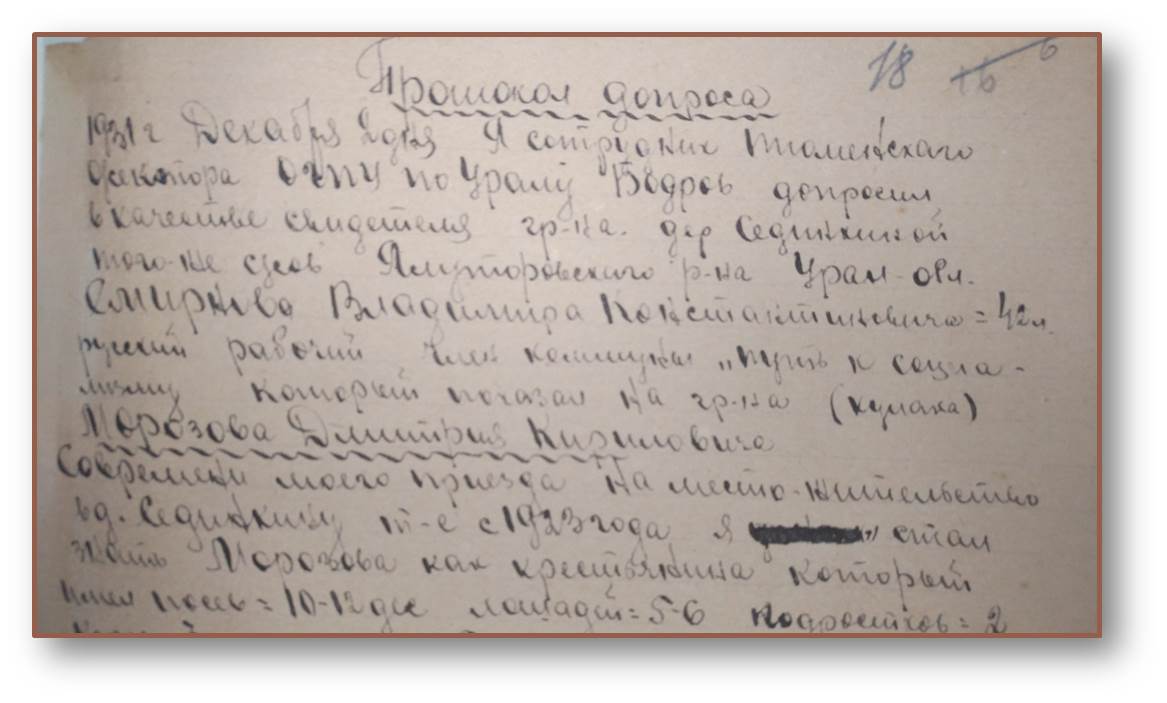 18 16 6
Протокол допроса
1931 г Декабря 2 дня Я сотрудник Тюменского
Осектора ОГПУ по Уралу Бодров допросил
в качестве свидетеля гр-на. дер Седункиной
того-же с/сов Ялуторовского р-на Урал-обл.
Смирнова Владимира Константиновича = 42 л.
русский рабочий член коммуны „Путь к социа-
лизму который показал на гр-на (кулака)
Морозова Дмитрия Кириловича
Современи моего приезда на место-жительство
в д. Седункину т-е с 1923 года я стал
знать Морозова как крестьянина который
имел посев = 10-12 дес лошадей = 5-6 подростков = 2